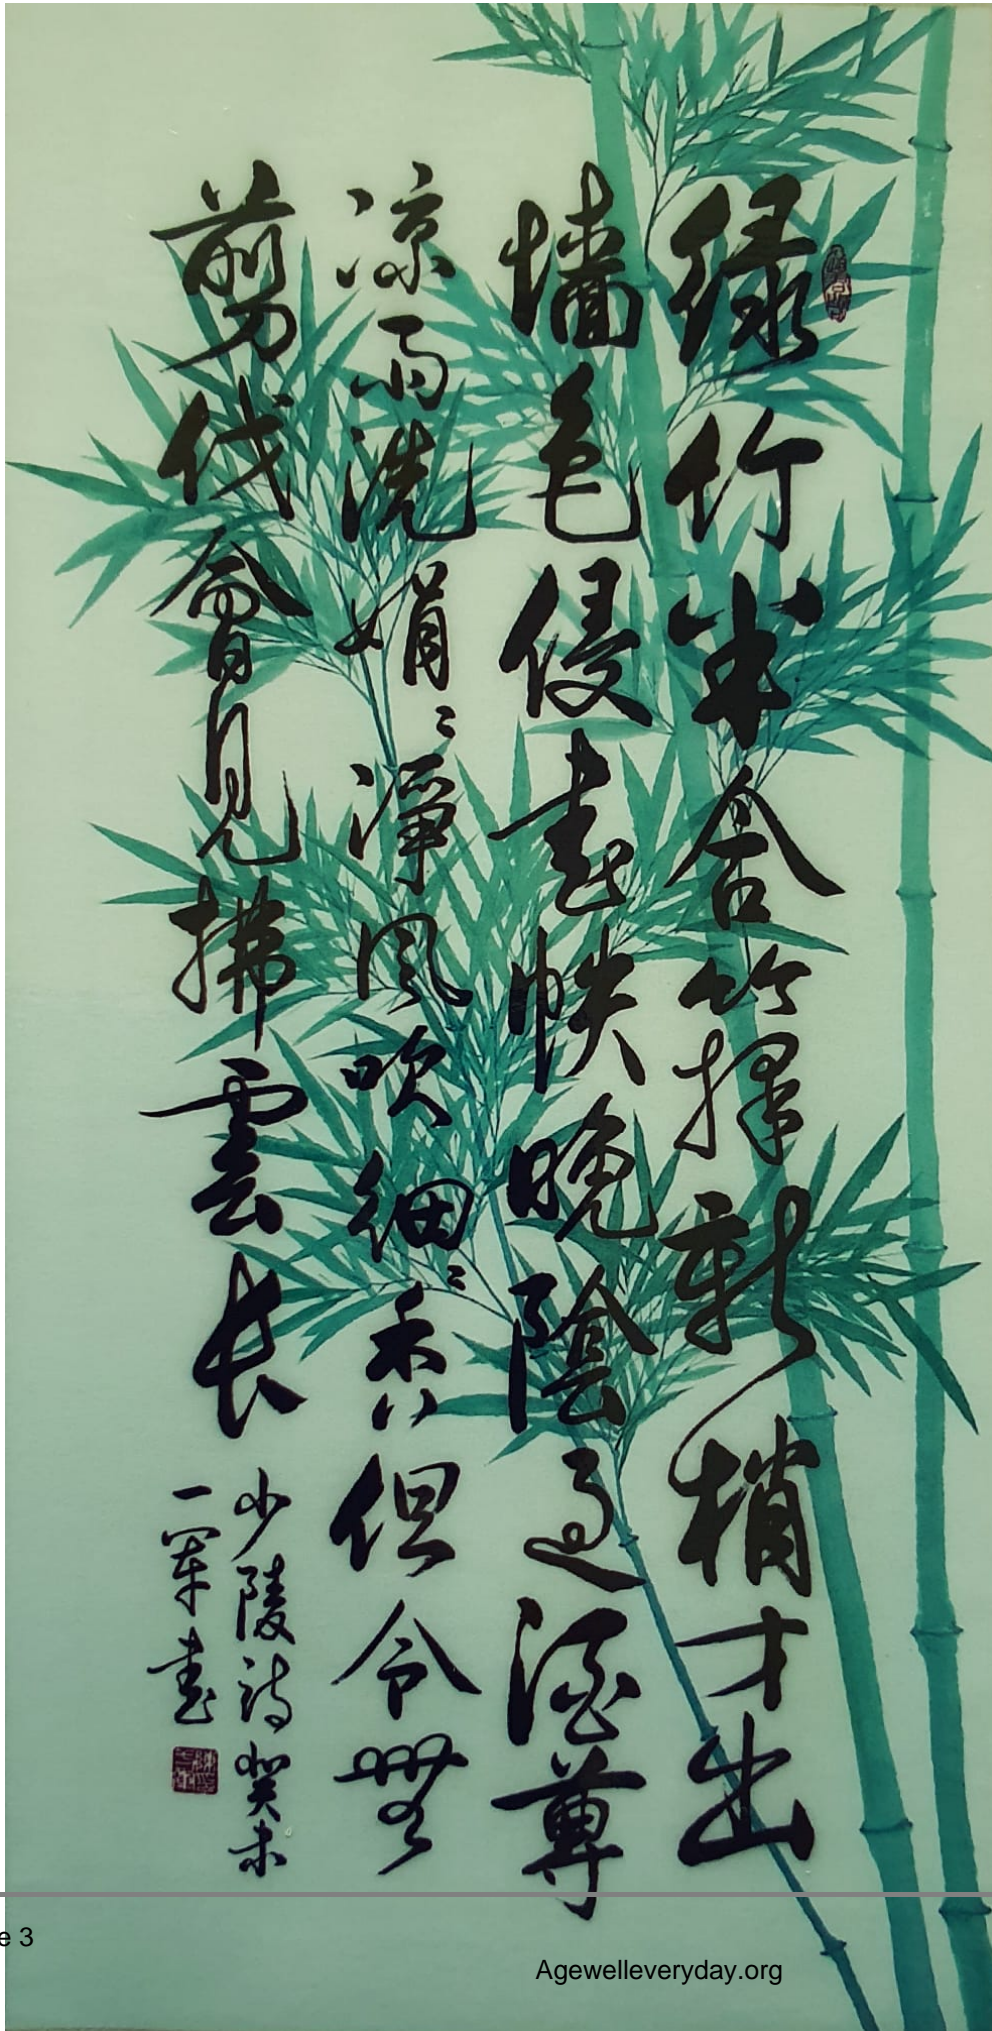 绿竹半含籜新梢才出
墻色侵書帙晚陰過酒尊
凉雨洗娟〻淨風吹細〻香但令無
剪伐會見拂雲長
少陵詩癸未
一軍書
e 3
Agewelleveryday.org